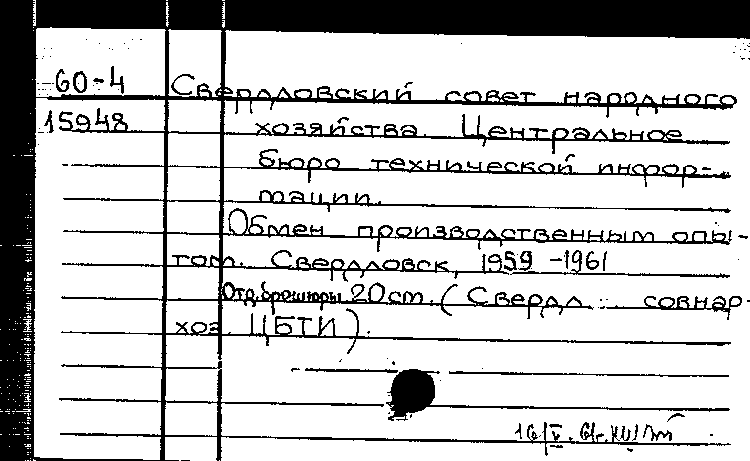 60-4 Свердловский совет народного
15948 хозяйства. Центральное
бюро технической инфор-
мации.
Обмен производственным опы-
том. Свердловск, 1959-1961
Отд. брошюры 20см. (Свердл. совнар-
хоз. ЦБТИ).